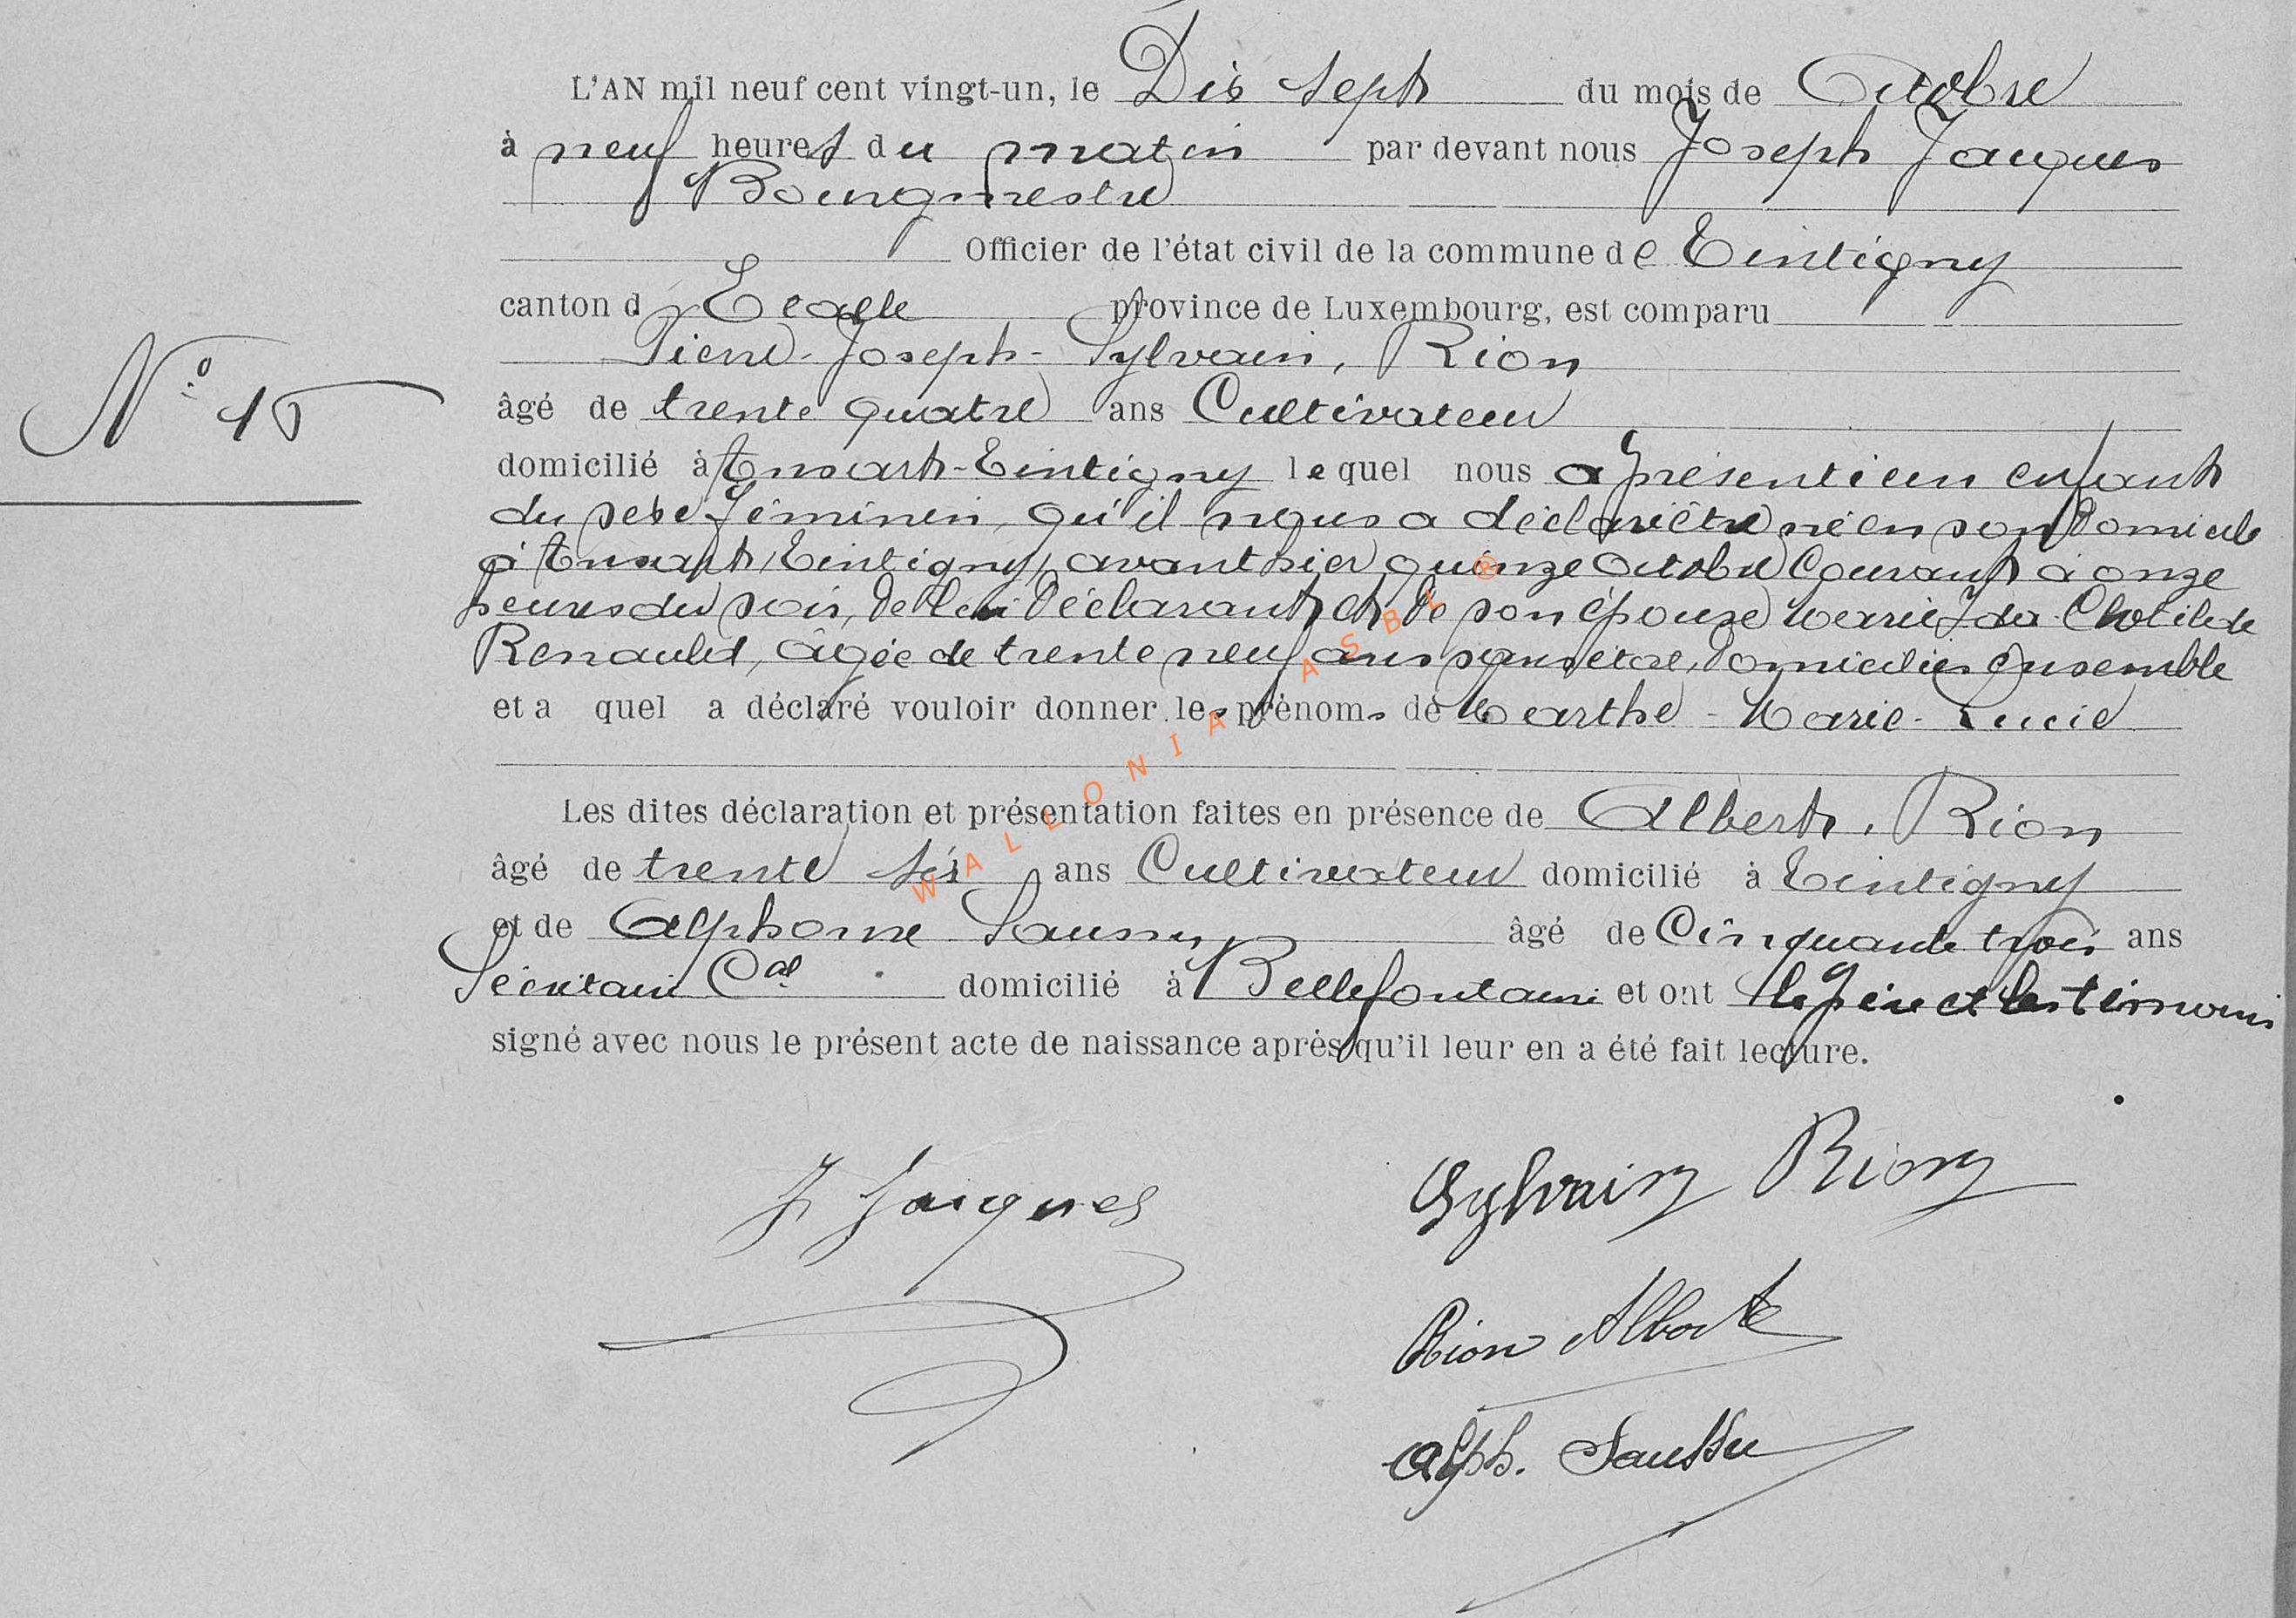 L'AN mil neuf cent vingt-un, le Dix sept du mois de Octobre
à neuf heures du matin par devant nous Joseph Jacques
Bourgmestre
Officier de l'état civil de la commune de Tintigny
canton d' Etalle province de Luxembourg, est comparu
Pierre-Joseph-Sylvain, Rion
N° 15
âgé de trente quatre ans Cultivateur
domicilié à Ansart-Tintigny lequel nous a présenté un enfant
du sexe féminin, qu'il nous a déclaré être né en son domicile
à Ansart, Tintigny, avant hier quinze Octobre Courant à onze
heures du soir, de lui Déclarant et de son épouse Marie Ida Clotilde
Renauld, âgée de trente neuf ans sans état, Domiciliés Ensemble
et a quel a déclaré vouloir donner les prénoms de Marthe-Marie-Lucie
Les dites déclaration et présentation faites en présence de Albert, Rion
âgé de trente six ans Cultivateur domicilié à Tintigny
et de Alphonse Saussu, âgé de Cinquante trois ans
Secrétaire Cal domicilié à Bellefontaine et ont le père et les témoins
signé avec nous le présent acte de naissance après qu'il leur en a été fait lecture.
J Jacques
Sylvain Rion
Rion Albert
Alph. Saussu
WALLONIA ASBL ®